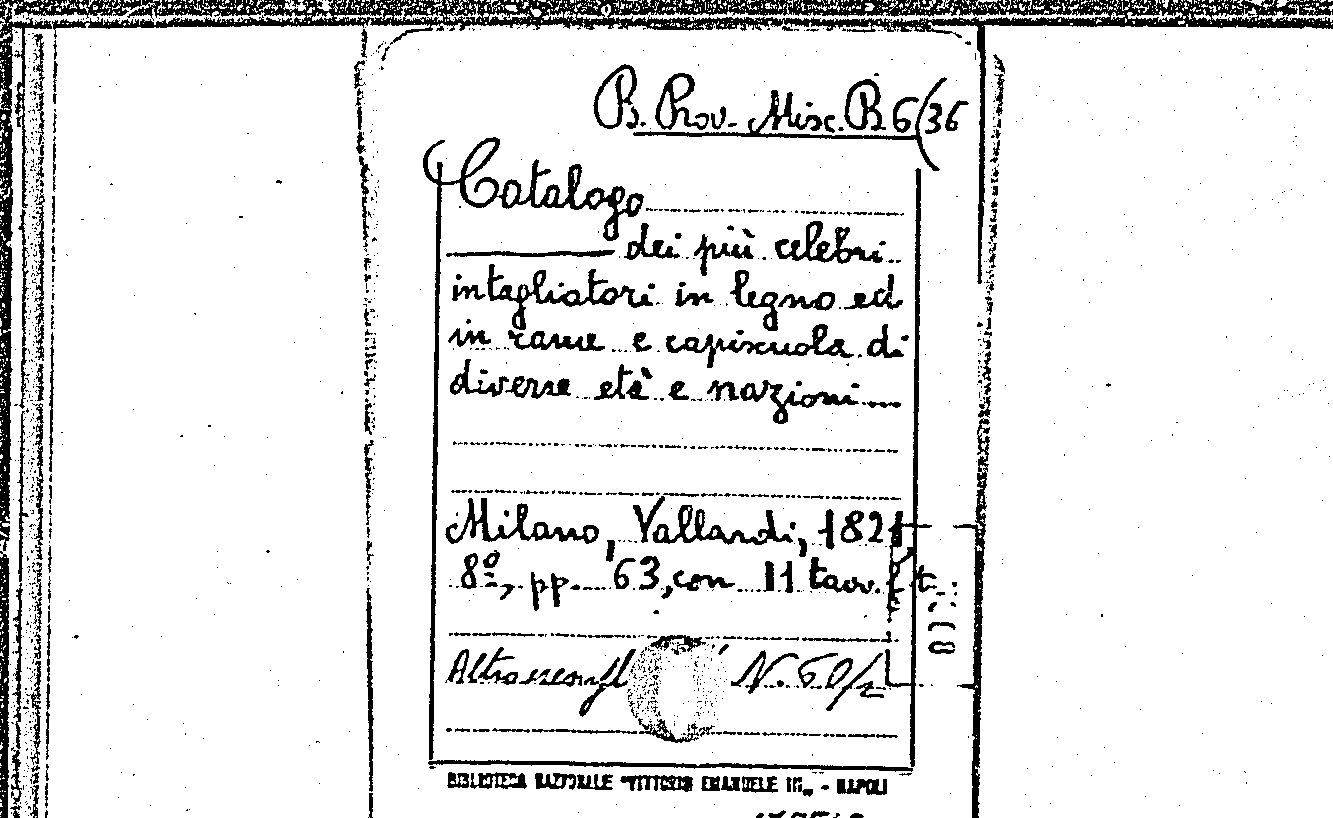 B. Prov. Misc. B. 6(36
Catalogo
dei più celebri
intagliatori in legno ed
in rame e capiscuola di
diverse età e nazioni....
Milano, Vallardi, 1821
8º, pp. 63, con 11 tavv. f. t.
Altro esempl N. 60/2
BIBLIOTECA NAZIONALE "VITTORIO EMANUELE III„ - NAPOLI